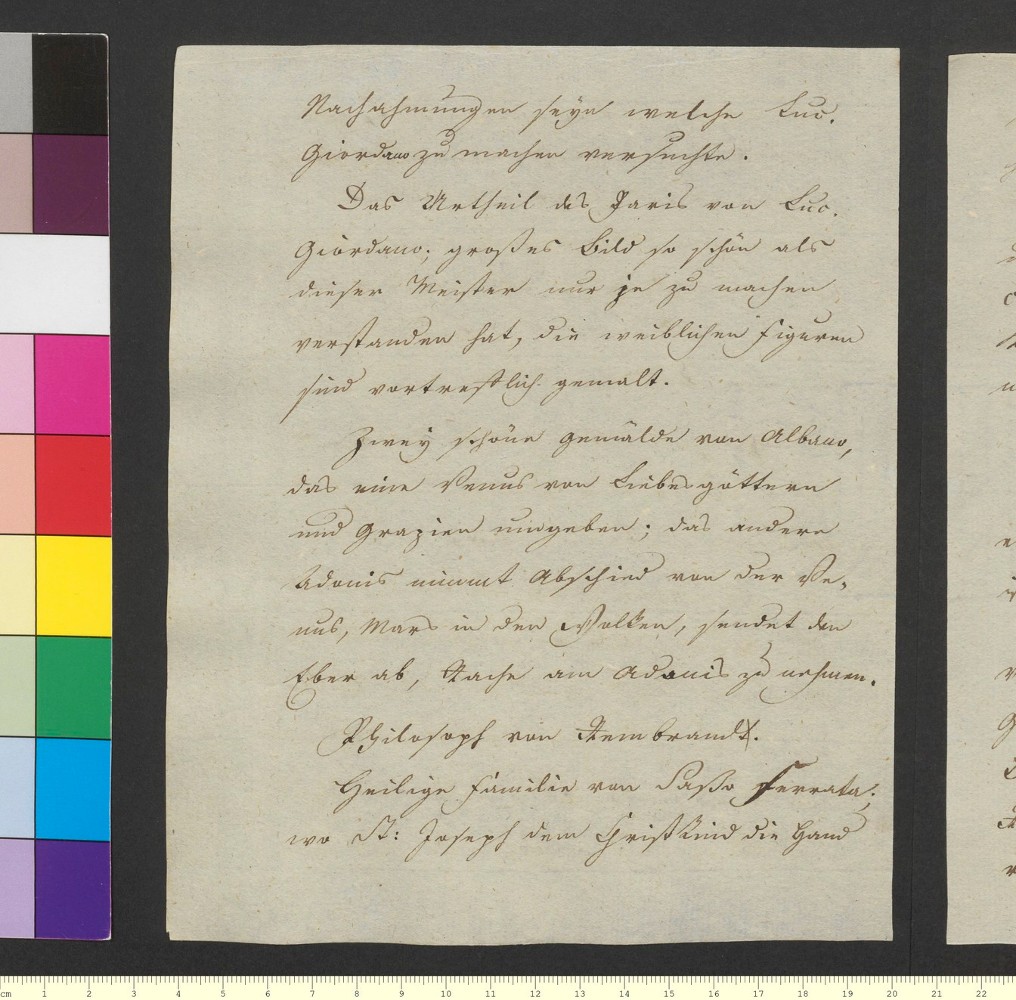 Nachahmungen seyn welche Luc.
Giordano zu machen versuchte.
Das Urtheil des Paris von Luc.
Giordano; großes Bild so schön als
dieser Meister nur je zu machen
verstanden hat, die weiblichen Figuren
sind vortreflich gemalt.
Zwey schöne Gemälde von Albano,
das eine Venus von Liebesgöttern
und Grazien umgeben; das andere
Adonis nimmt Abschied von der Ve-
nus, Mars in den Wolken, sendet den
Eber ab, Rache am Adonis zu nehmen.
Philosoph von Rembrandt.
Heilige Familie von Saßo Ferrata;
wo St: Joseph dem Christkind die Hand
cm 1 2 3 4 5 6 7 8 9 10 11 12 13 14 15 16 17 18 19 20 21 22